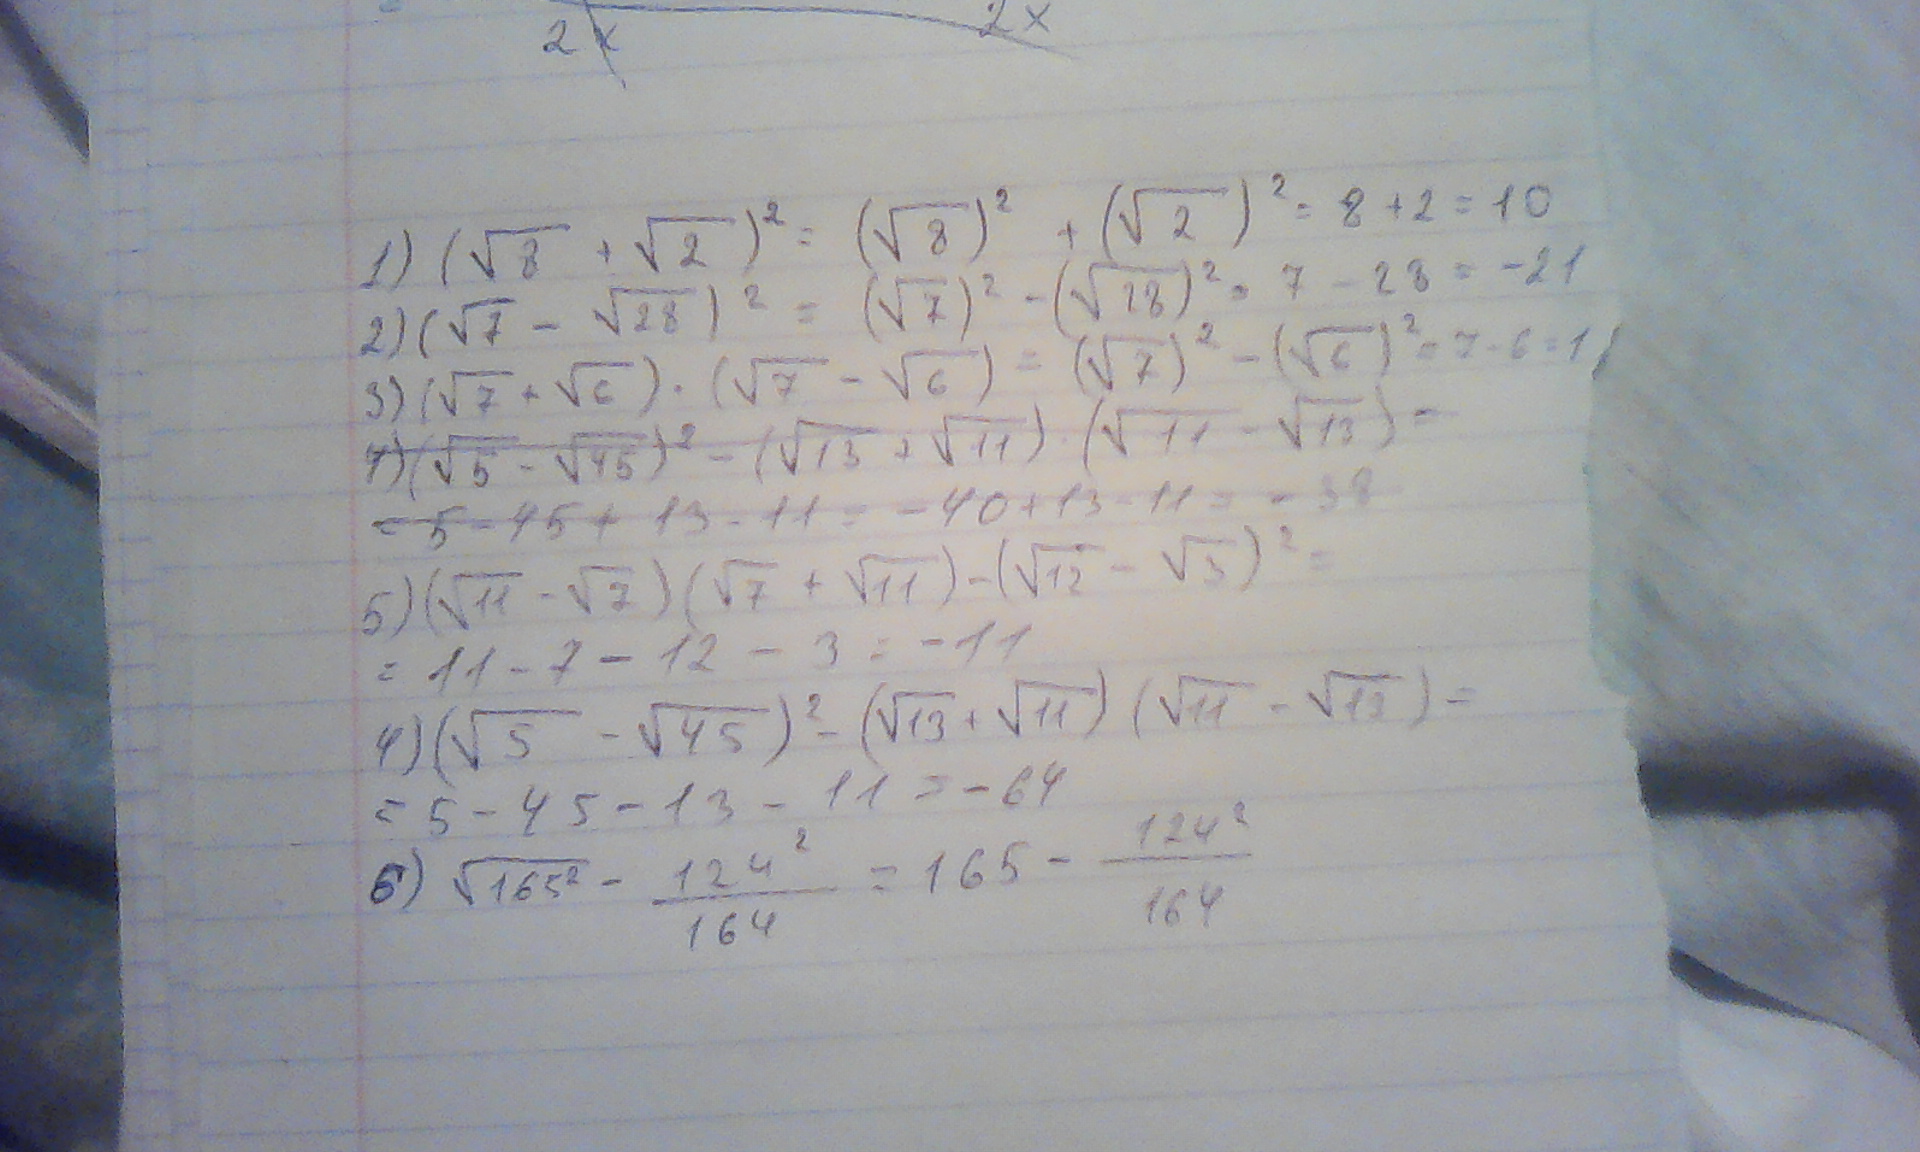 2x 2x
1) (√8 + √2)² = (√8)² + (√2)² = 8 + 2 = 10
2) (√7 - √28)² = (√7)² - (√28)² = 7 - 28 = -21
3) (√7 + √6) · (√7 - √6) = (√7)² - (√6)² = 7 - 6 = 1
4) (√5 - √45)² - (√13 + √11) · (√11 - √13) =
= 5 - 45 + 13 - 11 = -40 + 13 - 11 = -38
5) (√11 - √7) (√7 + √11) - (√12 - √3)² =
= 11 - 7 - 12 - 3 = -11
4) (√5 - √45)² - (√13 + √11) (√11 - √13) =
= 5 - 45 - 13 - 11 = -64
6) √165² - 124²/164 = 165 - 124²/164